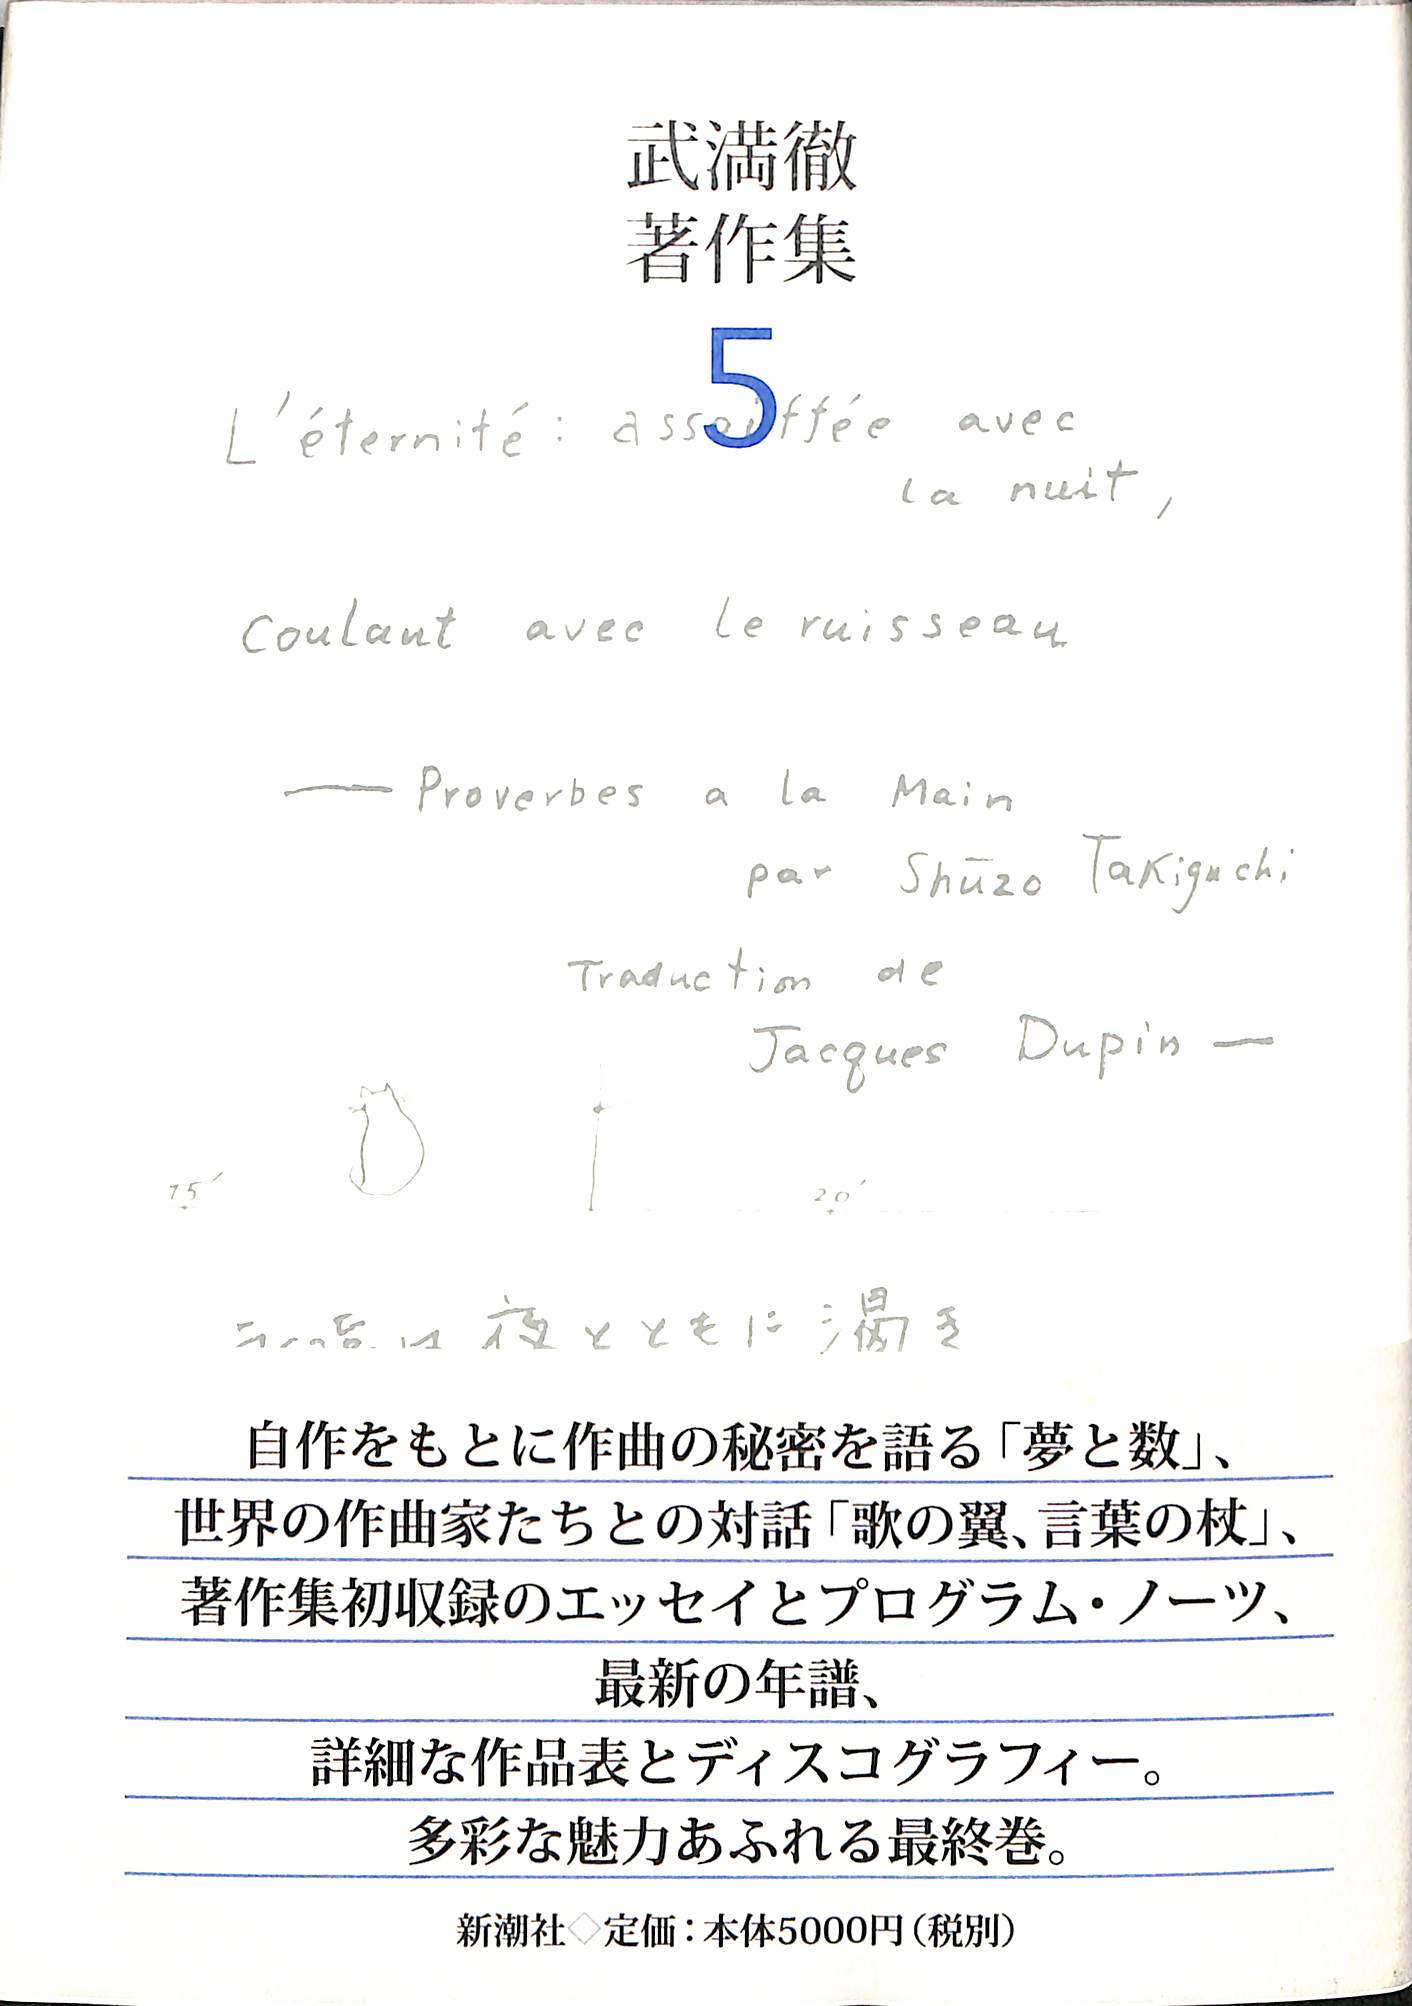 武満徹
著作集
5
L'éternité: assoiffée avec
la nuit,
coulant avec le ruisseau
— Proverbes a la Main
par Shūzo Takiguchi
Traduction de
Jacques Dupin —
15′
20′
夜とともに渇き
自作をもとに作曲の秘密を語る「夢と数」、
世界の作曲家たちとの対話「歌の翼、言葉の杖」、
著作集初収録のエッセイとプログラム・ノーツ、
最新の年譜、
詳細な作品表とディスコグラフィー。
多彩な魅力あふれる最終巻。
新潮社◇定価：本体5000円（税別）